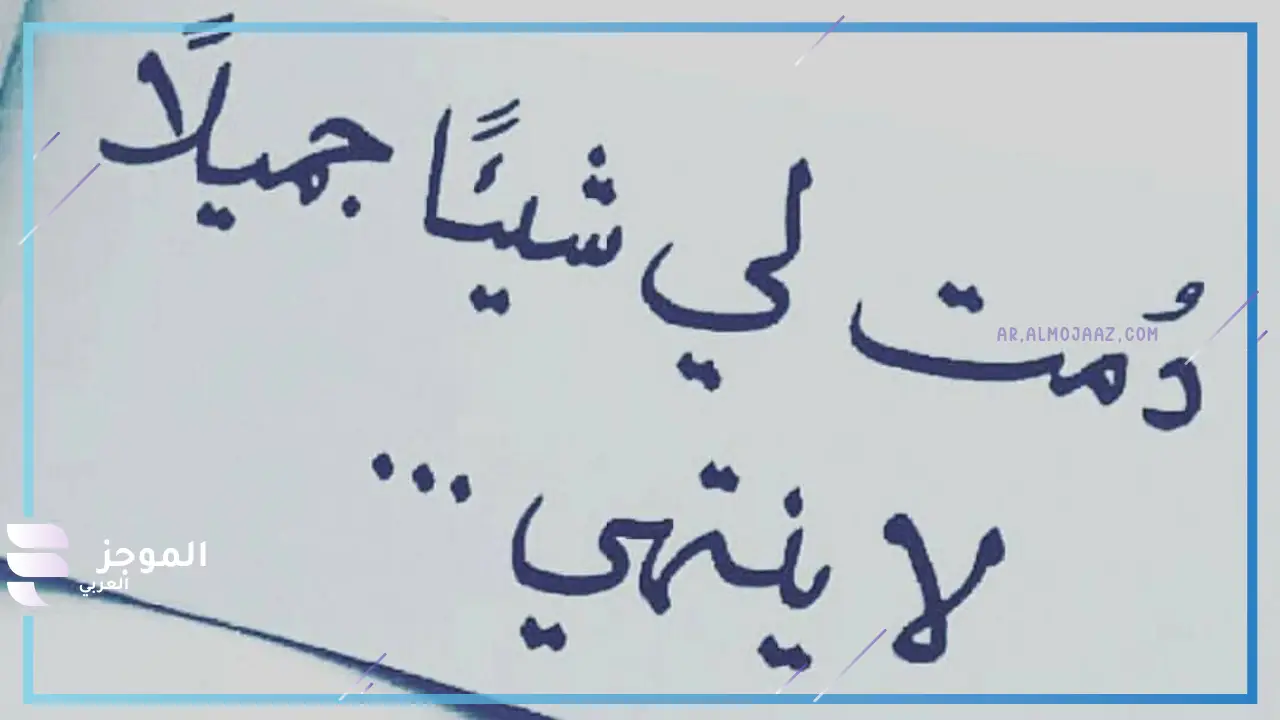 دُمت لي شيئًا جميلًا
AR.ALMOJAAZ.COM
لا ينتهي ...
الموجز
العربي